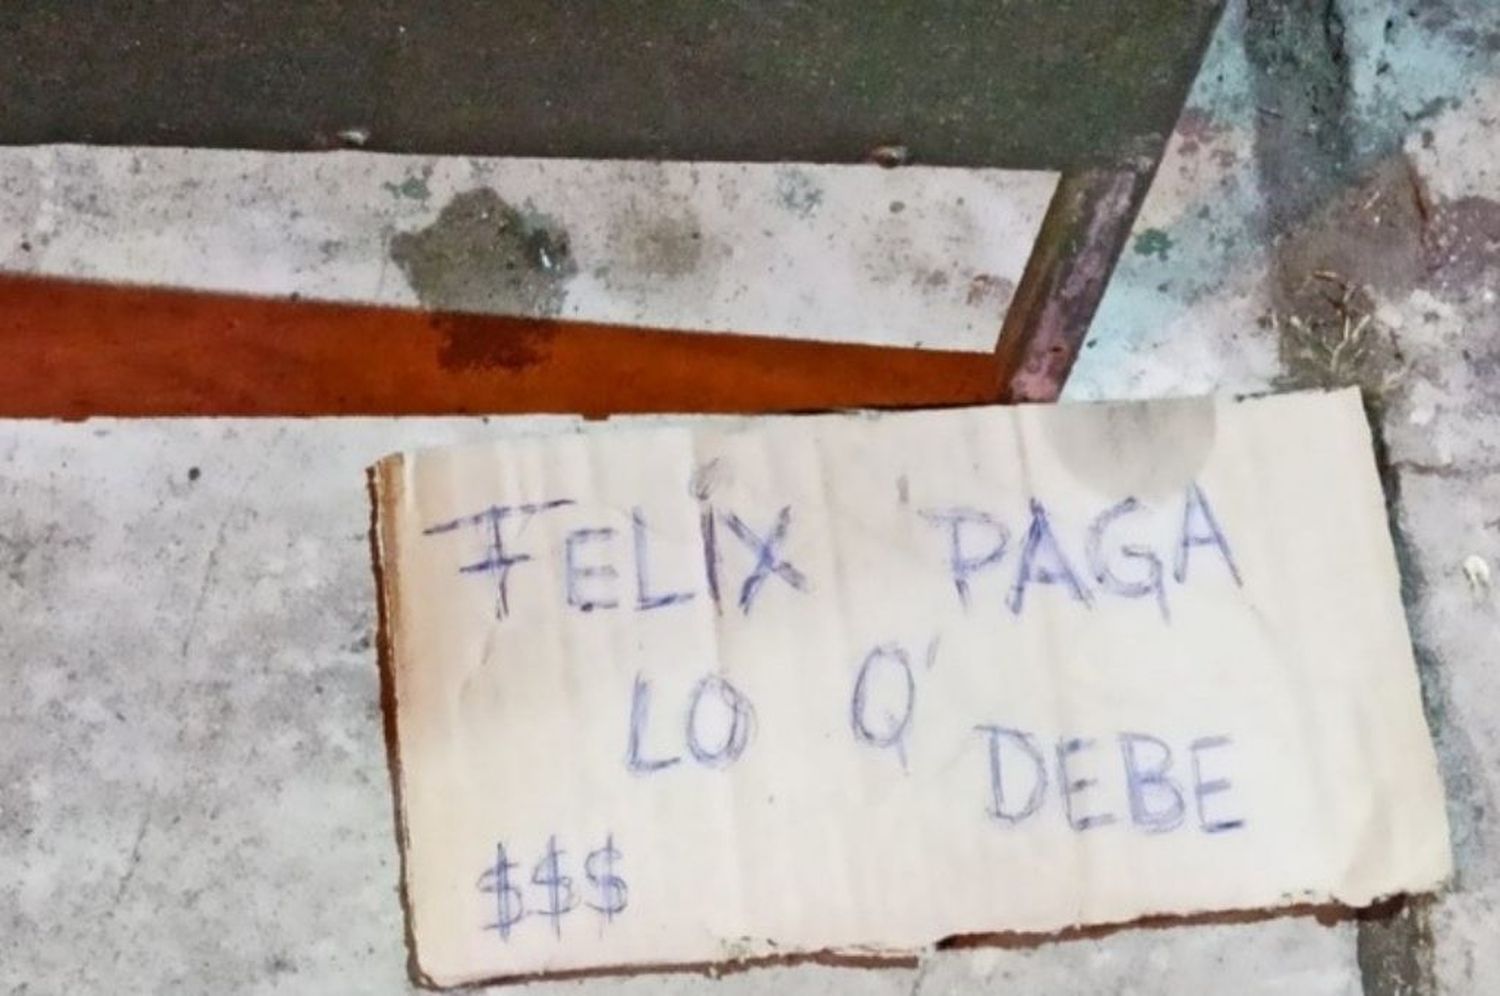 FELIX PAGA
LO Q'
DEBE
$$$